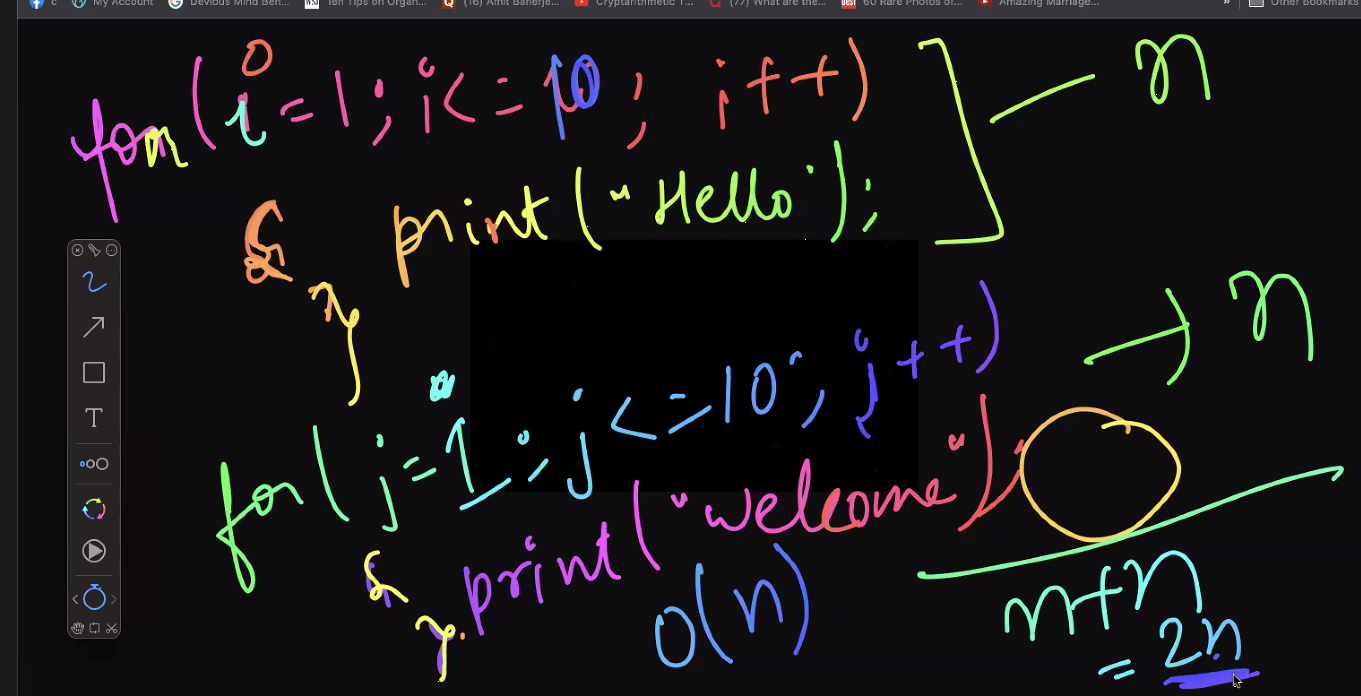 c My Account Devious Mind Ben... Ten Tips on Organi... (16) Amit Banerje... Cryptarithmetic T... (77) What are the... 60 Rare Photos of... Amazing Marriage... » Other Bookmarks
0
for(i=1; i<=10; i++) n
{ print("Hello");
}
n
for(j=1; j<=10; j++)
{ print("welcome");
}
O(n)
n+n
= 2n
T